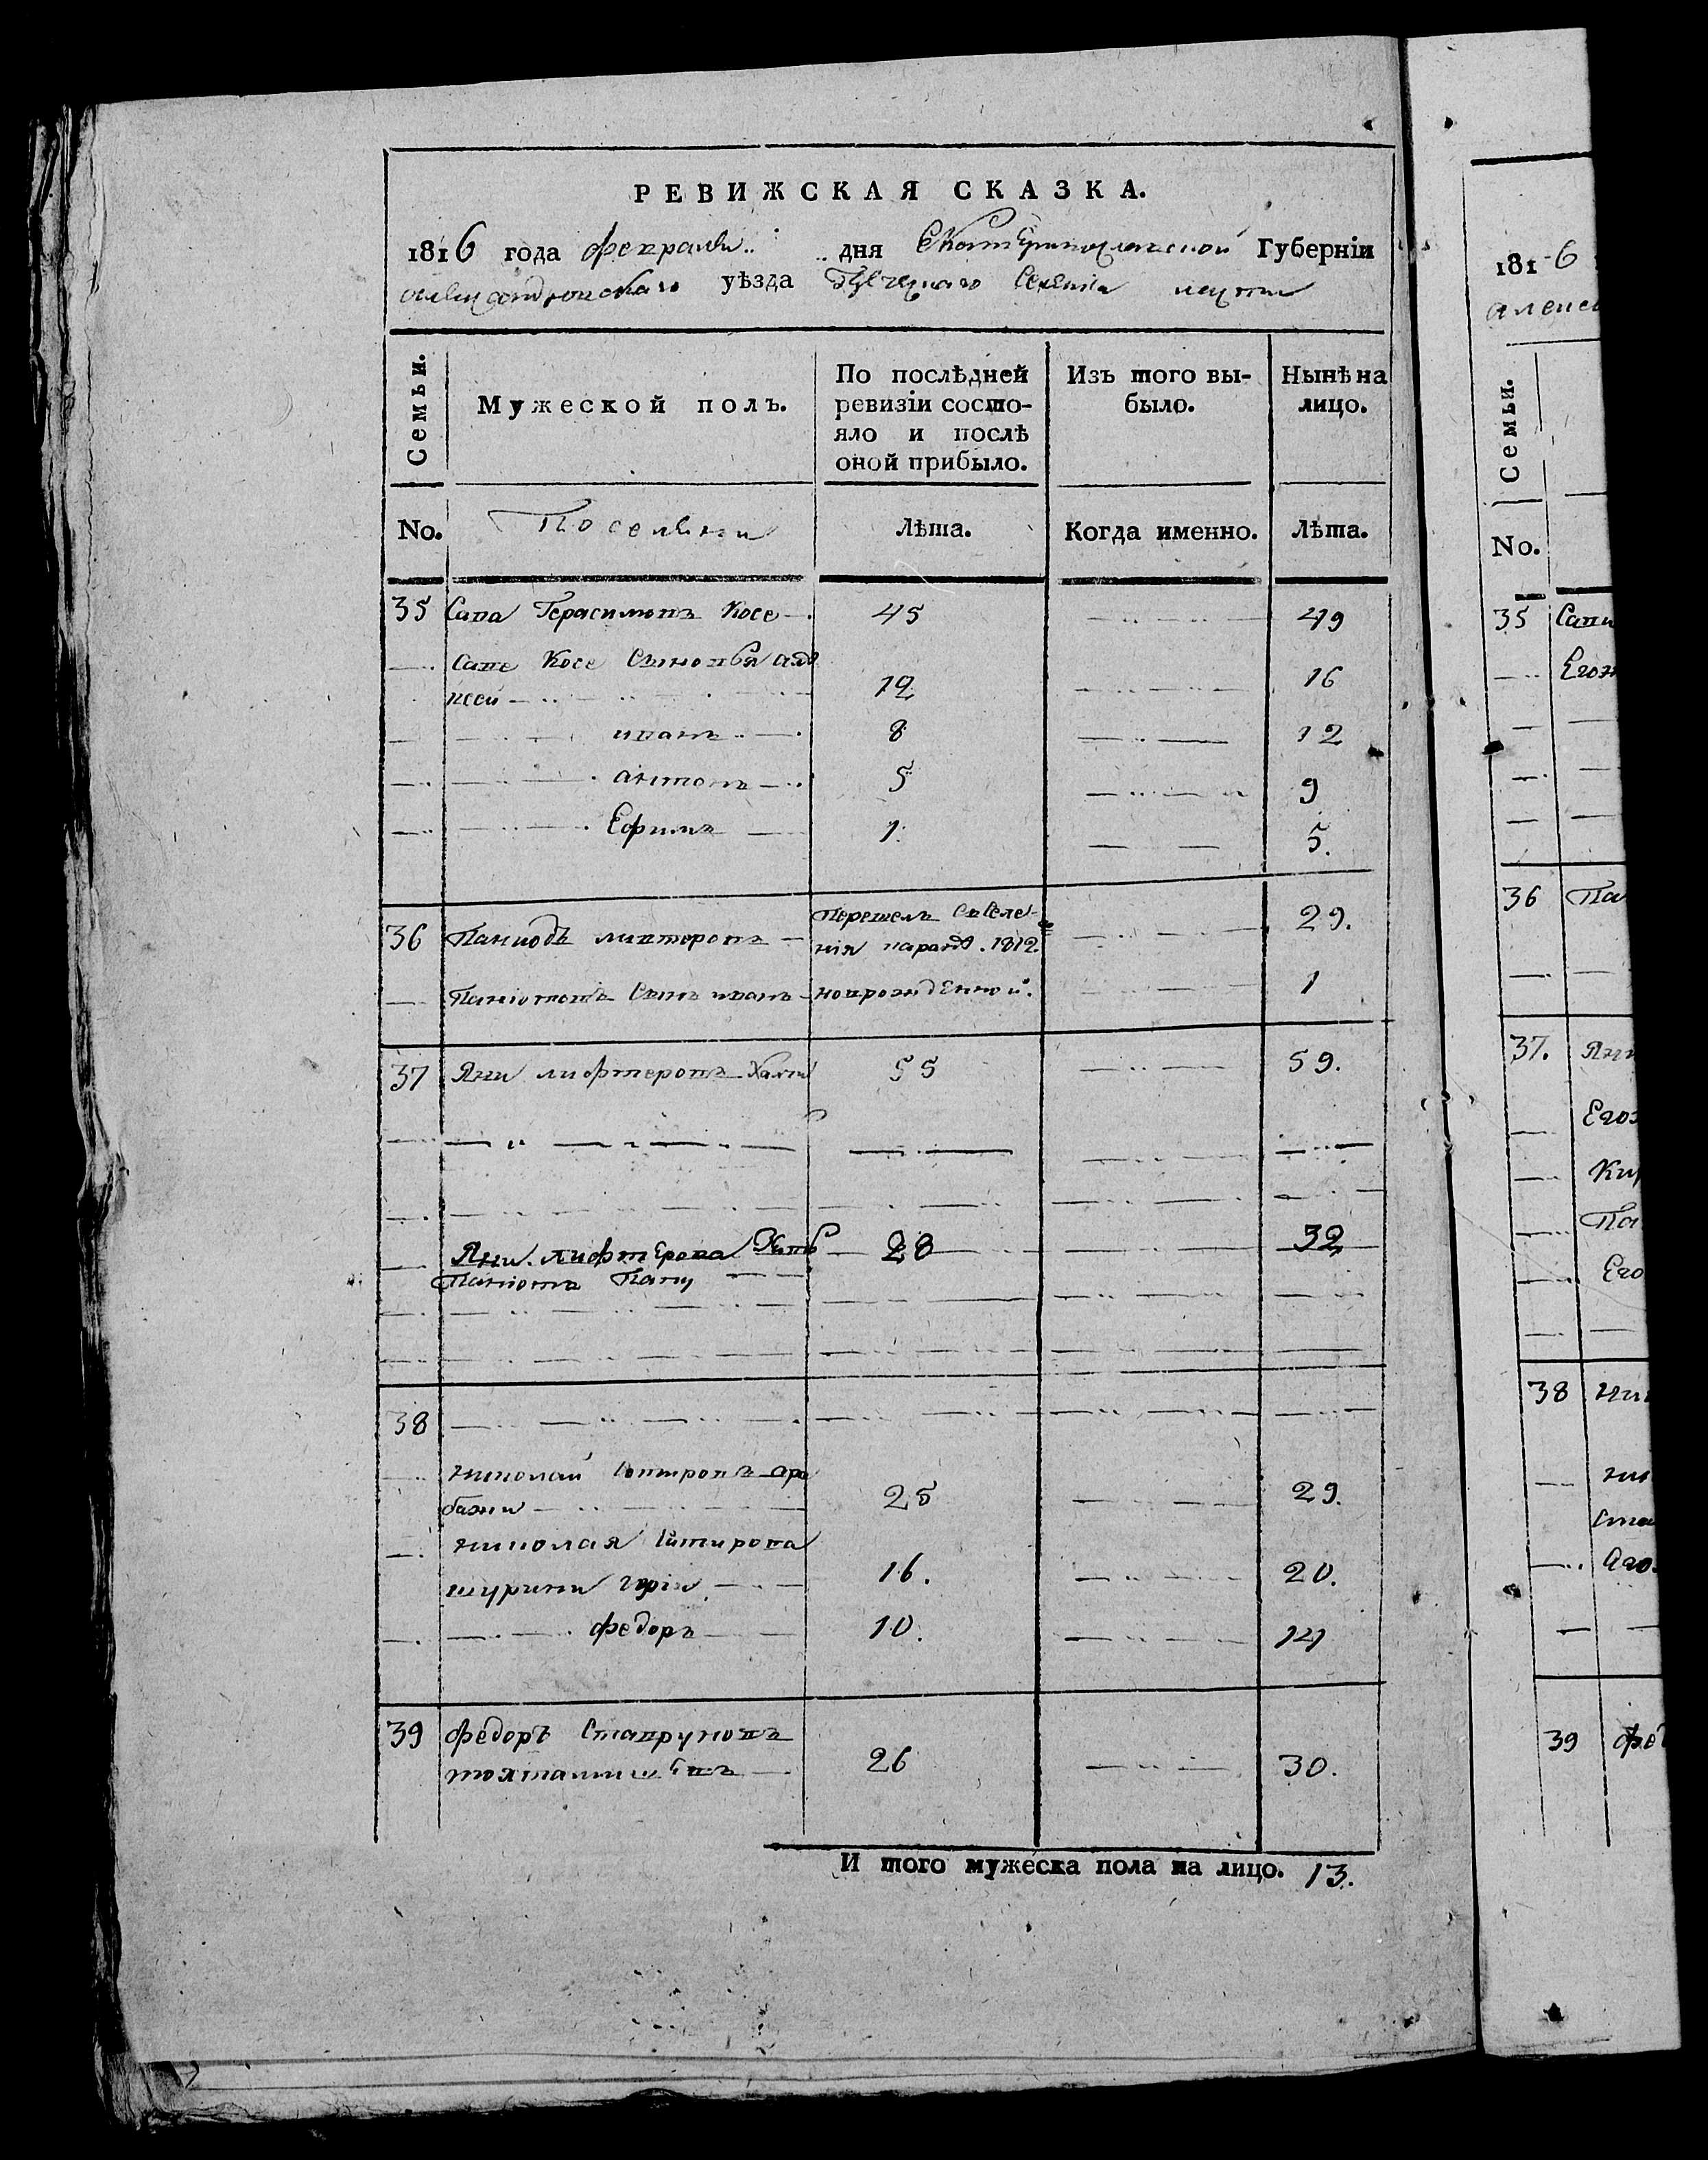 РЕВИЖСКАЯ СКАЗКА.
1816 года февраля дня Екатеринославской Губерніи
александровскаго уѣзда Греческаго Селенія
Семьи.
Мужеской полъ.
По послѣдней
ревизіи состо-
яло и послѣ
оной прибыло.
Изъ того вы-
было.
Нынѣ на
лицо.
No.
Поселяни
Лѣта.
Когда именно.
Лѣта.
35 Сава Герасимовъ Косе 45 49
Саве Косе Сыновья але
ксей 12 16
иванъ 8 12
антонъ 5 9
Ефимъ 1 5.
36 ливтеровъ Перешелъ съ Селе-
нія 1812. 29.
Паніотовъ Сынъ иванъ новрожденной. 1
37 Яни лифтеровъ 55 59.
Яни лифтерова 28 32
Паніотъ
38
николай сотировъ ара
бажи 25 29.
николая сотирова
шурини 16. 20.
федоръ 10. 14
39 федоръ Ставруновъ
26 30.
И того мужеска пола на лицо. 13.
181-6
алекс
Семьи.
No.
35 Сави
36 Па
37. Яни
Кир
Па
38 Ни
ни
39 фед